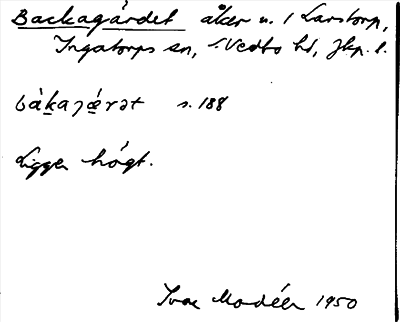 Backagärdet åker u. 1 Larstorp,
Ingatorps sn, S. Vedbo hd, Jkp. l.
bàkajæ̀rət s. 188
Ligger högt.
Ivar Modéer 1950